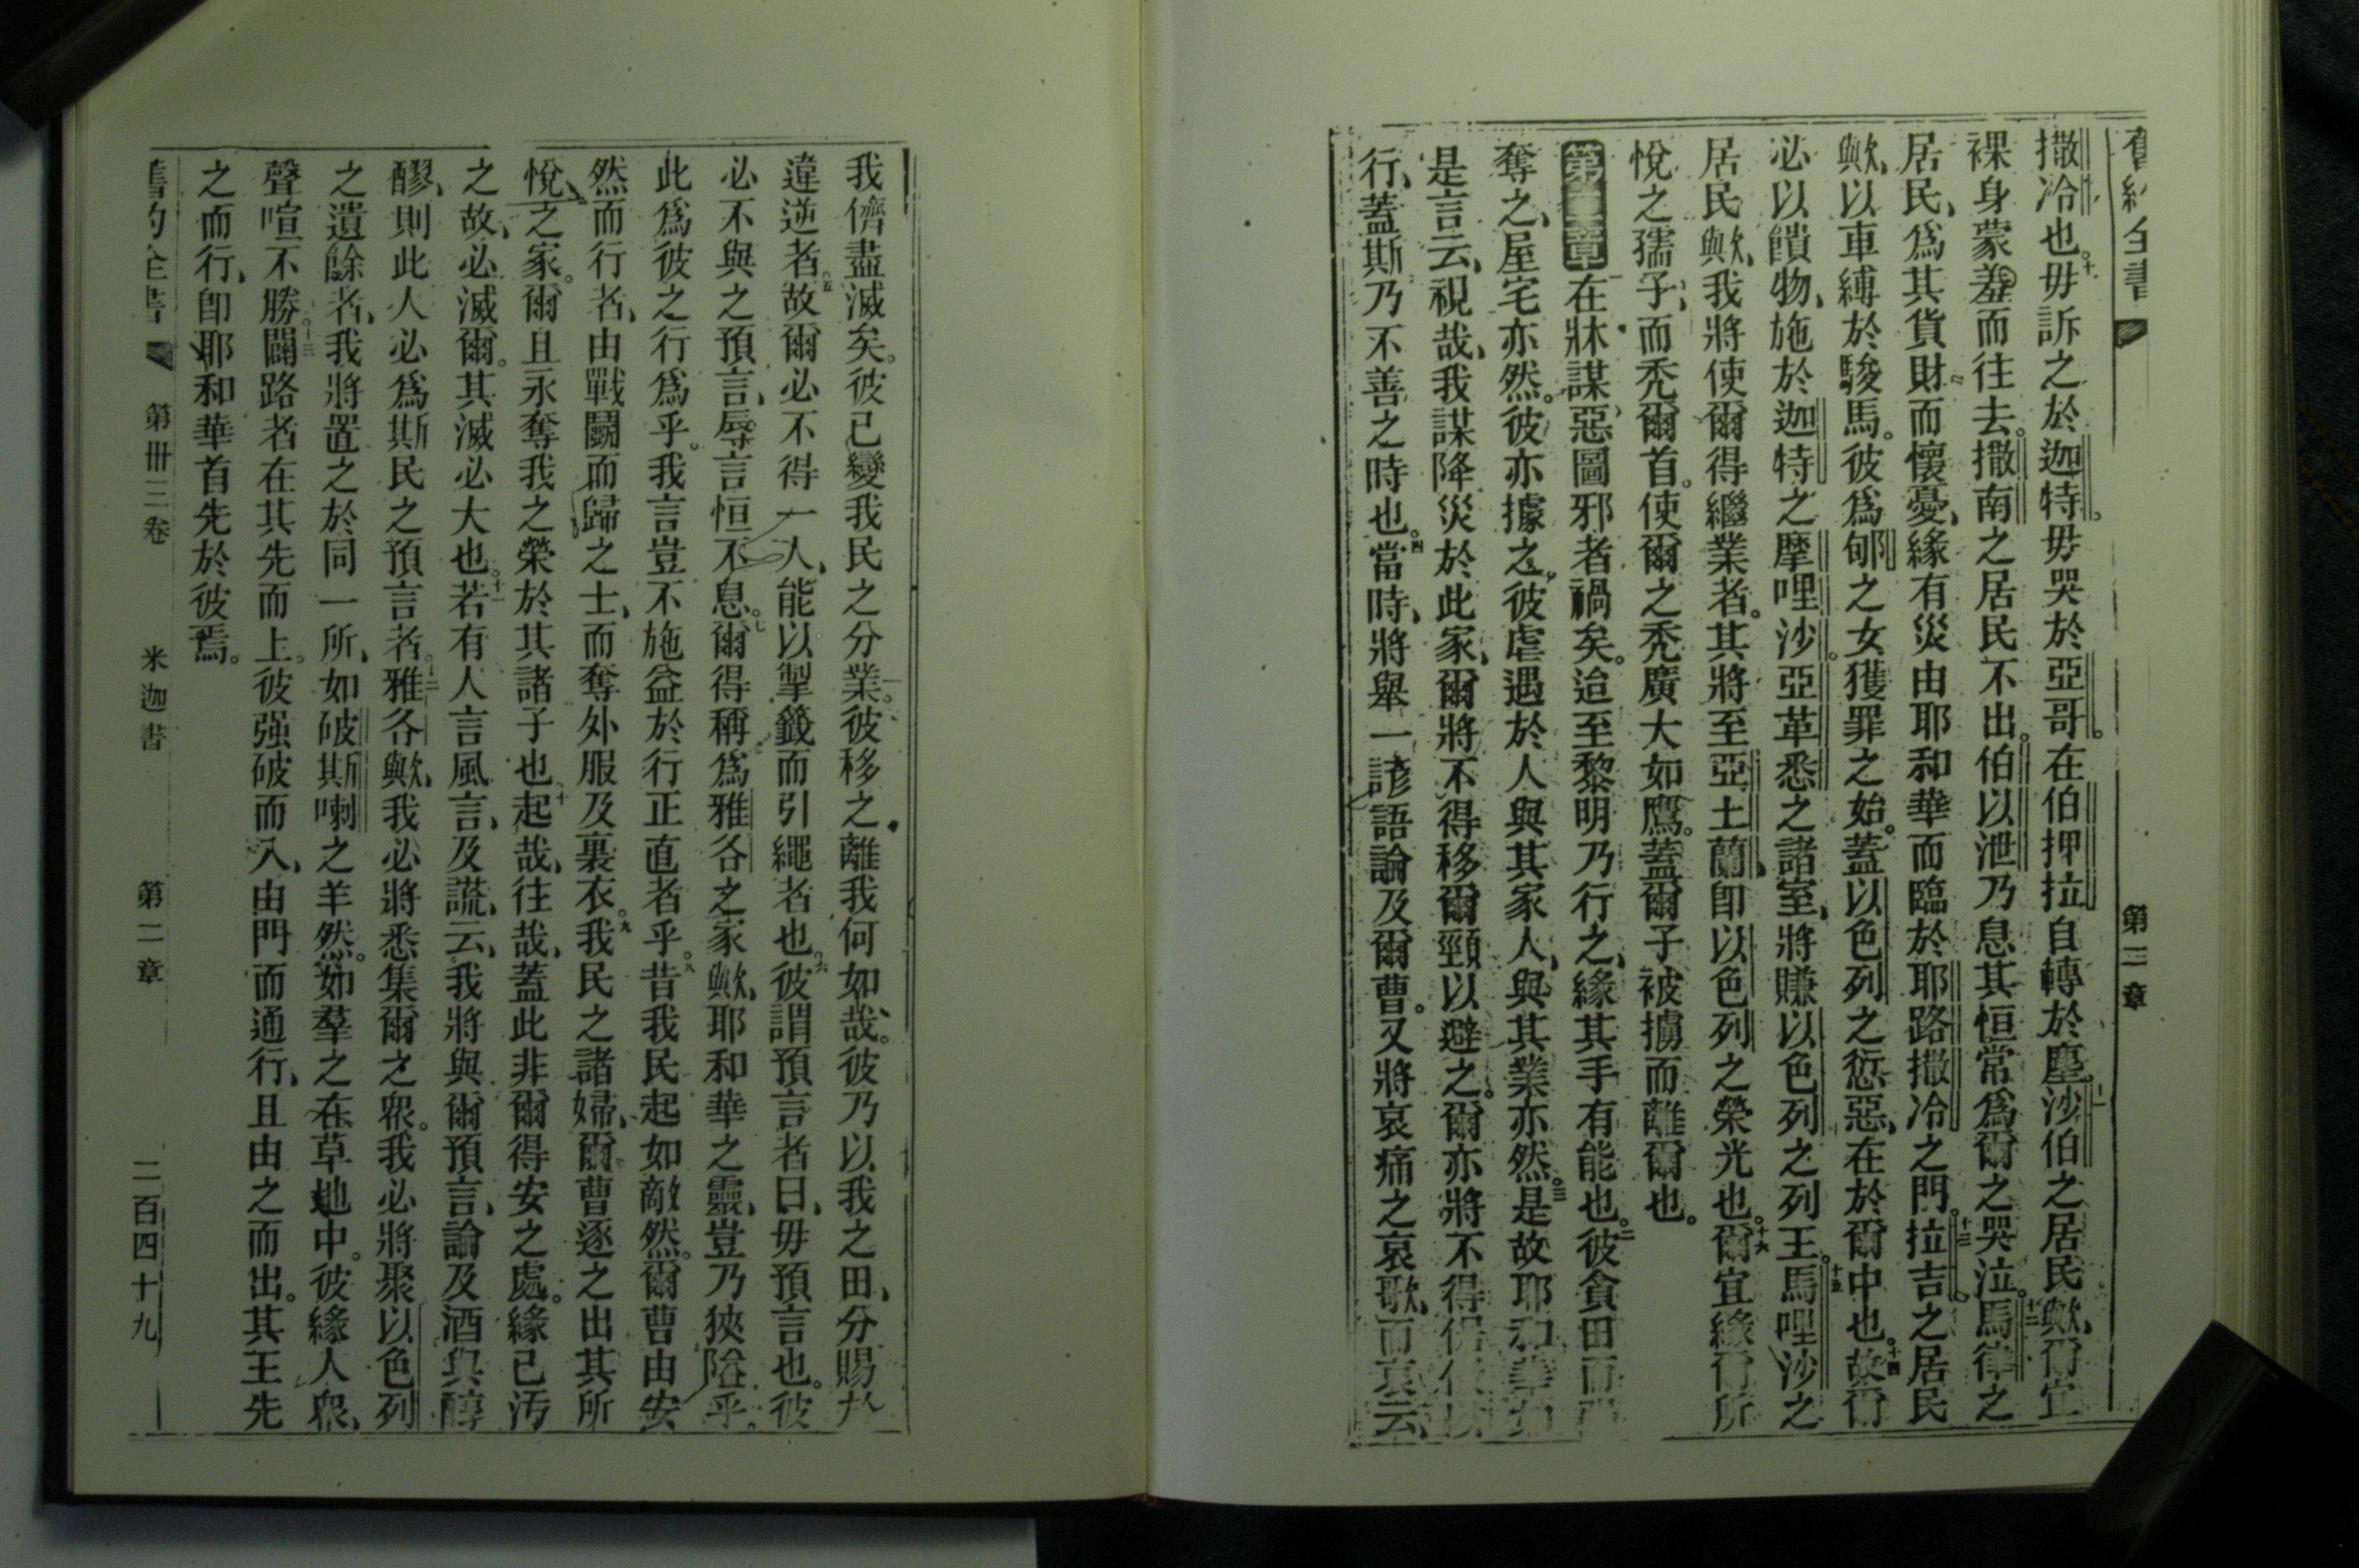 舊約全書 第二章
撒冷也。十毋訴之於迦特。毋哭於亞哥。在伯押拉自轉於塵。十一沙伯之居民歟、爾宜
裸身蒙羞而往去。撒南之居民不出。伯以泄乃息其恒常爲爾之哭泣。十二馬律之
居民、爲其貨財而懷憂、緣有災由耶和華而臨於耶路撒冷之門。十三拉吉之居民
歟、以車縛於駿馬。彼爲郇之女獲罪之始。蓋以色列之愆惡、在於爾中也。十四故爾
必以饋物、施於迦特之摩哩沙。亞革悉之諸室、將賺以色列之列王。十五馬哩沙之
居民歟、我將使爾得繼業者。其將至亞土蘭、卽以色列之榮光也。十六爾宜緣爾所
悅之孺子、而禿爾首。使爾之禿廣大如鷹。蓋爾子被擄而離爾也。
第二章 在牀謀惡圖邪者禍矣。迨至黎明乃行之、緣其手有能也。二彼貪田而
奪之、屋宅亦然。彼亦據之。彼虐遇於人與其家人、與其業亦然。三是故耶和華如
是言云、視哉、我謀降災於此家、爾將不得移爾頸以避之。爾亦將不得
行、蓋斯乃不善之時也。四當時、將舉一諺語論及爾曹。又將哀痛之哀歌、而哀云、
我儕盡滅矣。彼已變我民之分業。彼移之離我何如哉。彼乃以我之田、分賜於
違逆者。五故爾必不得一人、能以掣籤而引繩者也。六彼謂預言者曰、毋預言也。彼
必不與之預言、辱言恒不息。七爾得稱爲雅各之家歟、耶和華之靈、豈乃狹隘乎。
此爲彼之行爲乎。我言豈不施益於行正直者乎。八昔我民起如敵然。爾曹由安
然而行者、由戰鬭而歸之士、而奪外服及裏衣。九我民之諸婦、爾曹逐之出其所
悅之家。爾且永奪我之榮於其諸子也。十起哉、往哉、蓋此非爾得安之處。緣已汚
之故、必滅爾。其滅必大也。十一若有人言風言、及謊云、我將與爾預言、論及酒與醇
醪、則此人必爲斯民之預言者。十二雅各歟、我必將悉集爾之衆。我必將聚以色列
之遺餘者、我將置之於同一所、如破斯喇之羊然。如羣之在草地中。彼緣人衆、
聲喧不勝。十三闢路者在其先而上。彼强破而入、由門而通行、且由之而出。其王先
之而行、卽耶和華首先於彼焉。
舊約全書 第卅三卷 米迦書 第二章 二百四十九